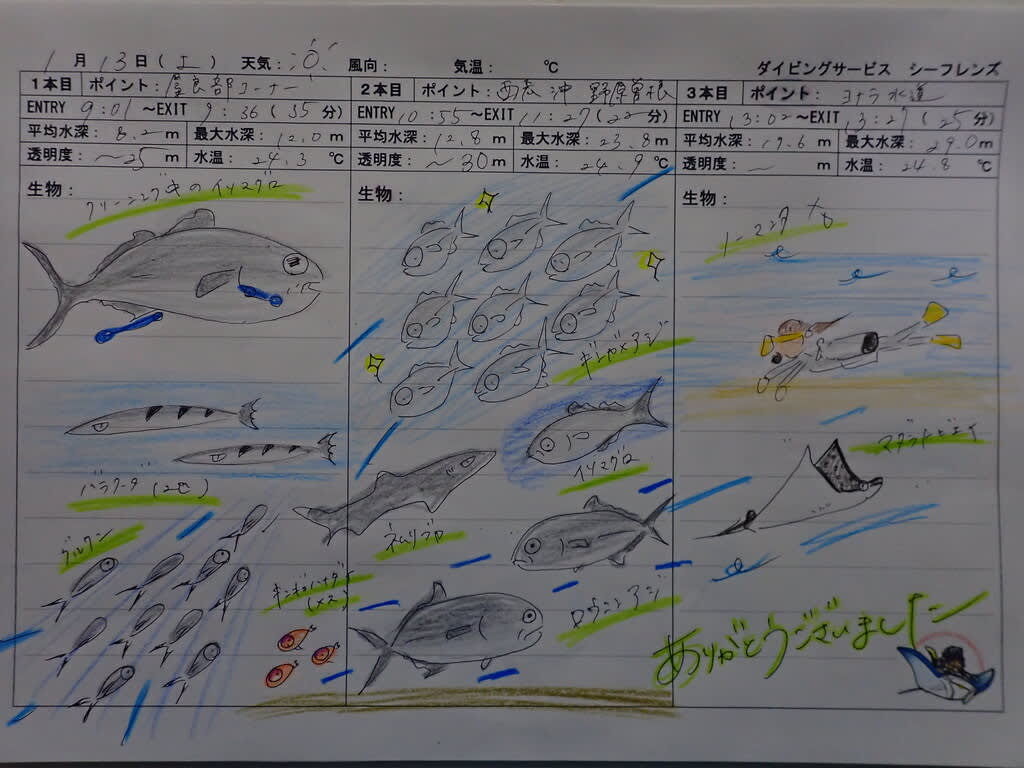 1月13日(土) 天気: 風向: 気温: ℃ ダイビングサービス シーフレンズ
1本目 ポイント:屋良部コーナー
ENTRY 9:01 ~EXIT 9:36 (35分)
平均水深: 8.2 m 最大水深: 12.0 m
透明度: ~25 m 水温: 24.3 ℃
生物:
クリーニング中のイソマグロ
バラクーダ(2匹)
グルクン
キンギョハナダイ
(メス)
2本目 ポイント: 沖 野原曽根
ENTRY 10:55 ~EXIT 11:27 (22分)
平均水深: 12.8 m 最大水深: 23.8 m
透明度: ~30 m 水温: 24.9 ℃
生物:
ギンガメアジ
イソマグロ
ネムリブカ
ロウニンアジ
3本目 ポイント: ヨナラ水道
ENTRY 13:02 ~EXIT 13:27 (25分)
平均水深: 17.6 m 最大水深: 29.0 m
透明度: ~ m 水温: 24.8 ℃
生物:
ノーマンタ
マダラトビエイ
ありがとうございました